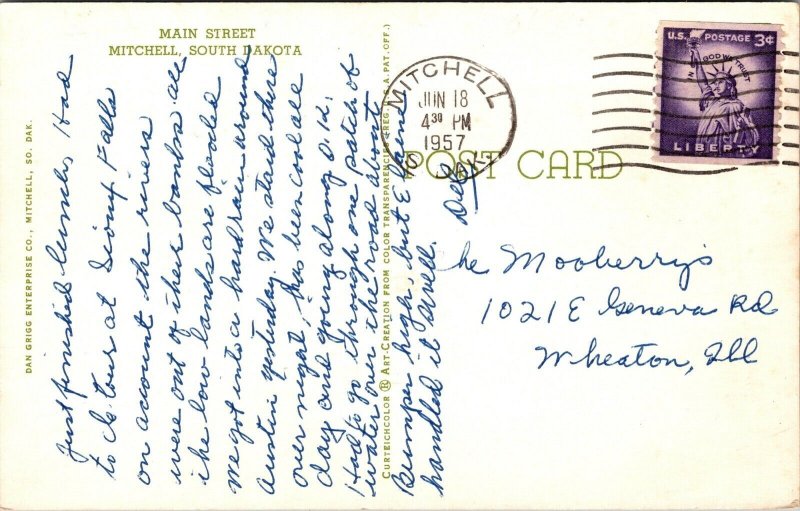 MAIN STREET
MITCHELL, SOUTH DAKOTA
Just finished lunch. Had
to de tour at Sioux Falls
on account the rivers
were out of their banks. All
the low lands are flooded
We got into a hard rain around
Austin yesterday. We staid there
over night, has been cool all
day and going along O.K.
Had to go through one patch of
water over the road about
Bumper high, but E
handled it swell. Dell
DAN GRIGG ENTERPRISE CO., MITCHELL, SO. DAK.
CURTEICHCOLOR ® ART-CREATION FROM COLOR TRANSPARENCIES (REG. U.S.A. PAT. OFF.)
POST CARD
MITCHELL
JUN 18
4 30 PM
1957
S. DAK.
U.S. POSTAGE 3¢
IN GOD WE TRUST
LIBERTY
The Mooberry's
1021 E Geneva Rd
Wheaton, Ill